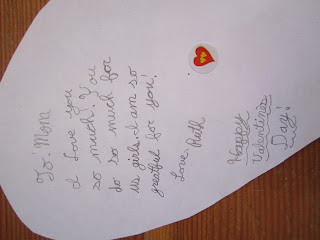 To: Mom
I Love you
so much! You
do so much for
us girls. I am so
greatful for you!
Love, Ruth
Happy
Valentines
Day!